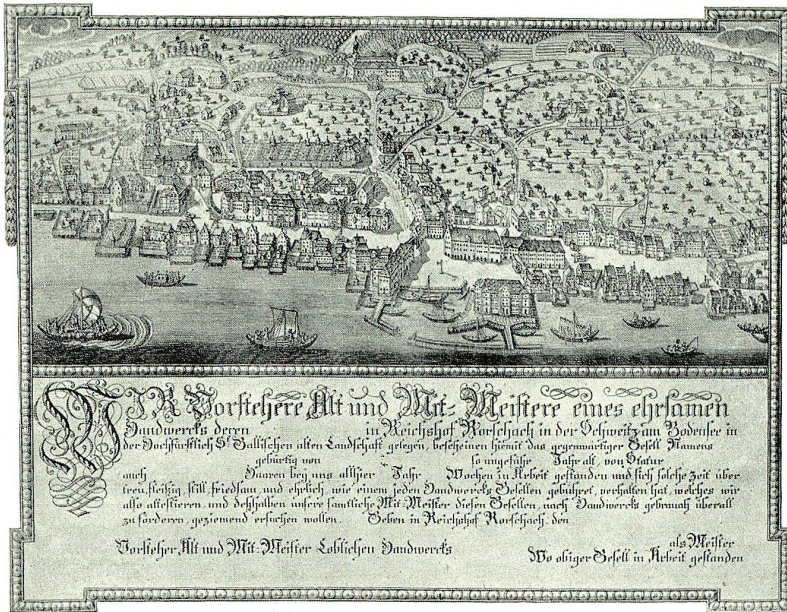 WIR Vorstehere Alt und Mit-Meistere eines ehrsamen
Handwercks deren in Reichshof Rorschach in der Schweitz am Bodensee in
der Hochfürstlich St. Gallischen alten Landschaft gelegen, bescheinen hiemit das gegenwärtiger Gesell Namens
gebürtig von so ungefähr Jahr alt, von Statur
auch Haaren bey uns allhier Jahr Wochen in Arbeit gestanden und sich solche Zeit über
treu, fleißig, still, friedsam, und ehrlich, wie einem jeden Handwercks Gesellen gebühret, verhalten hat, welches wir
also attestieren, und deßhalben unsere samtliche Mit-Meister diesen Gesellen, nach Handwercks gebrauch überall
zu förderen, geziemend ersuchen wollen. Geben in Reichshof Rorschach, den
Vorsteher Alt und Mit-Meister Loblichen Handwercks als Meister
Wo obiger Gesell in Arbeit gestanden